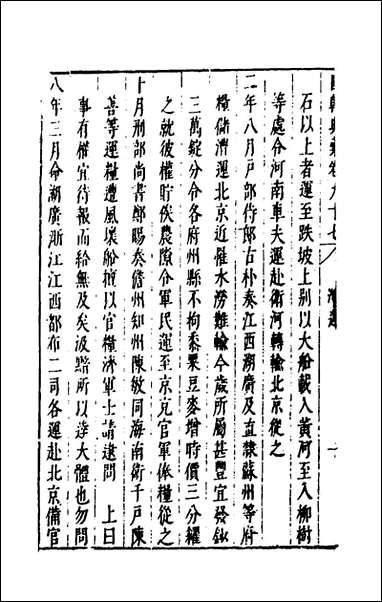 國朝典彙卷九十七 漕運 一
石以上者運至跌坡上別以大船載入黃河至入柳樹
等處令河南車夫運赴衛河轉輸北京從之
二年八月戶部侍郎古朴奏江西湖廣及直隸蘇州等府
糧儲漕運北京近罹水澇難輸今歲所屬甚豐宜發鈔
三萬錠分令各府州縣不拘黍粟豆麥增時價三分糴
之就彼權貯俟農隙令軍民運至京充官軍俸糧從之
十月刑部尚書鄭賜奏儋州知州陳敏同海南衛千戶陳
善等運糧遭風壞船擅以官糧濟軍士請逮問 上曰
事有權宜待報而給無及矣汲黯所以達大體也勿問
八年三月命湖廣浙江江西都布二司各運赴北京備官